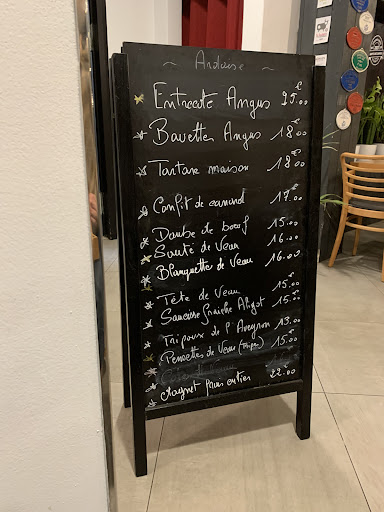 ~ Ardoise ~
Entrecote Angus 25.00€
Bavette Angus 18.00€
Tartare maison 18.00€
Confit de canard 17.00€
Daube de bœuf 15.00
Sauté de Veau 16.00
Blanquette de Veau 16.00
Tête de Veau 15.00
Saucisse fraiche Aligot 15.00
Tripoux de l'Aveyron 13.00
de Veau (Tripes) 15.00
entier 22.00